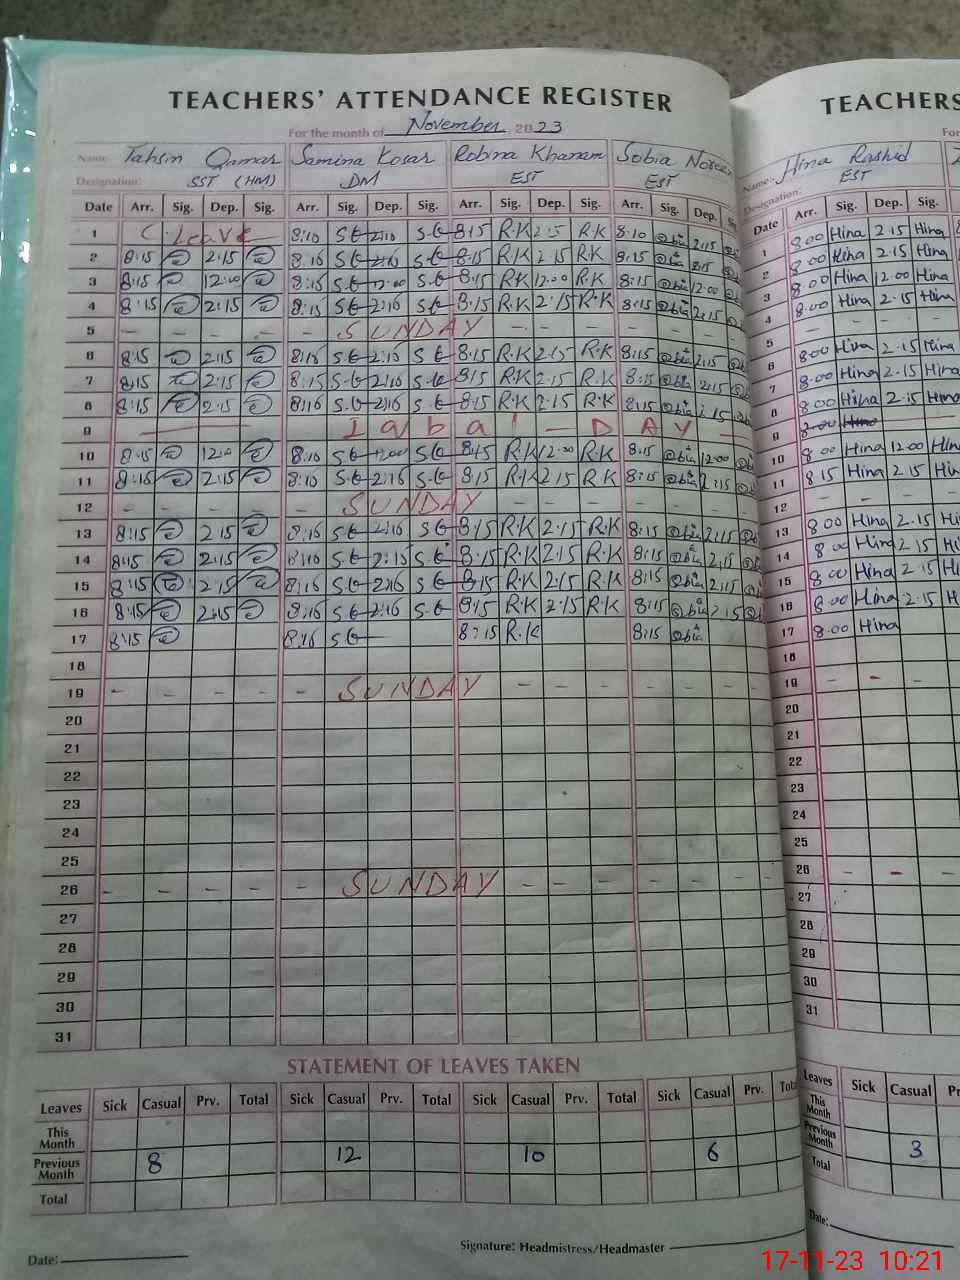 TEACHERS' ATTENDANCE REGISTER
For the month of November 2023
Name Tahsin Qamar Samina Kosar Robina Khanam Sobia Noreen
Designation: SST (HM) DM EST EST
Date Arr. Sig. Dep. Sig. Arr. Sig. Dep. Sig. Arr. Sig. Dep. Sig. Arr. Sig. Dep.
1 C. Leave 8:10 S.G 2:10 S.G 8:15 R.K 2.15 R.K 8.10 2:15
2 8:15 2:15 8:16 S.G 2:16 S.G 8:15 R.K 2.15 R.K 8:15 2:15
3 8:15 12:00 8:16 S.G 12:00 S.G 8:15 R.K 12.00 R.K 8:15 12:00
4 8:15 2:15 8:15 S.G 2:16 S.G 8:15 R.K 2.15 R.K 8:15 2:15
5 - - - - - SUNDAY - - - - - -
6 8:15 2:15 8:16 S.G 2:16 S.G 8.15 R.K 2.15 R.K 8:15 2:15
7 8:15 2:15 8:15 S.G 2:16 S.G 8:15 R.K 2.15 R.K 8:15 2:15
8 8:15 2:15 8:16 S.G 2:16 S.G 8:15 R.K 2.15 R.K 8:15 2:15
9 Iqbal - DAY
10 8:15 12:00 8:10 S.G 12:00 S.G 8:45 R.K 12.00 R.K 8.15 12:00
11 8:16 2:15 8:10 S.G 2:16 S.G 8:15 R.K 2.15 R.K 8:15 2:15
12 - - - - - SUNDAY - - - - - -
13 8:15 2:15 8:16 S.G 2:16 S.G 8:15 R.K 2.15 R.K 8:15 2:15
14 8:15 2:15 8:16 S.G 2:15 S.G 8:15 R.K 2.15 R.K 8:15 2:15
15 8:15 2:15 8:16 S.G 2:16 S.G 8:15 R.K 2.15 R.K 8:15 2:15
16 8:15 2:15 8:16 S.G 2:16 S.G 8:15 R.K 2.15 R.K 8:15 2.15
17 8:15 8:16 S.G 8:15 R.K 8:15
18
19 - - - - - SUNDAY - - - - - -
20
21
22
23
24
25
26 - - - - - SUNDAY - - - - - -
27
28
29
30
31
STATEMENT OF LEAVES TAKEN
Leaves Sick Casual Prv. Total Sick Casual Prv. Total Sick Casual Prv. Total Sick Casual Prv.
This Month
Previous Month 8 12 10 6
Total
Date:
Signature: Headmistress/Headmaster
TEACHERS
Name:- Hina Rashid
Designation: EST
Date Arr. Sig. Dep. Sig.
1 8.00 Hina 2.15 Hina
2 8.00 Hina 2.15 Hina
3 8.00 Hina 12.00 Hina
4 8.00 Hina 2.15 Hina
5 - - -
6 8.00 Hina 2.15 Hina
7 8.00 Hina 2.15 Hina
8 8.00 Hina 2.15 Hina
9 8.00 Hina
10 8.00 Hina 12.00 Hina
11 8.15 Hina 2.15
12 - - -
13 8.00 Hina 2.15
14 8.00 Hina 2.15
15 8.00 Hina 2.15
16 8.00 Hina 2.15
17 8.00 Hina
18
19 - - -
20
21
22
23
24
25
26 - - -
27
28
29
30
31
Leaves Sick Casual
This Month
Previous Month 3
Total
Date:
17-11-23 10:21